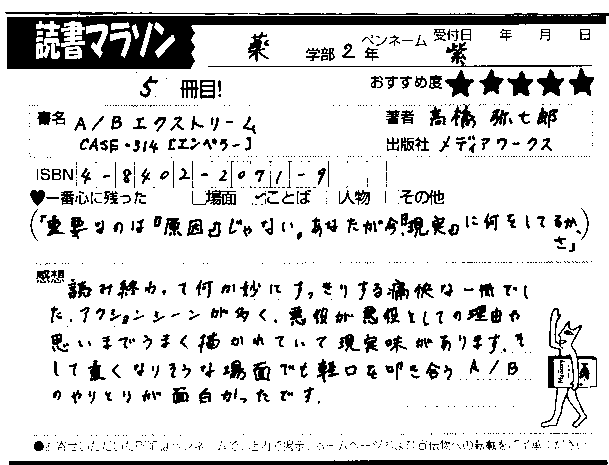 読書マラソン 薬 学部 2 年 ペンネーム 紫 受付日 年 月 日
5 冊目! おすすめ度 ★★★★★
書名 A/B エクストリーム 著者 高橋 弥七郎
CASE-314 [エンペラー] 出版社 メディアワークス
ISBN 4-8402-2071-9
♥一番心に残った □場面 ☑ことば □人物 □その他
(「重要なのは『原因』じゃない。あなたが今『現実』に何をしてるか、
さ」)
感想 読み終わって何か妙にすっきりする痛快な一冊でし
た。アクションシーンが多く、悪役が悪役としての理由や
思いまでうまく描かれていて現実味があります。そ
して重くなりそうな場面でも軽口を叩き合う A/B
のやりとりが面白かったです。
●お寄せいただいた